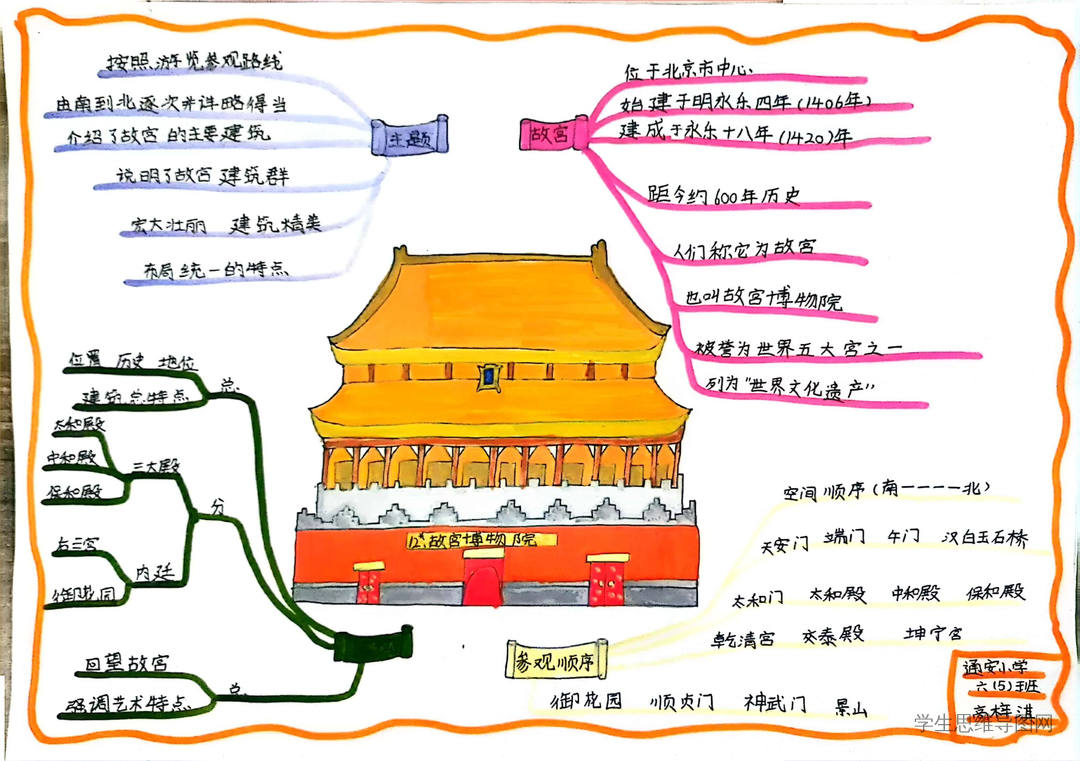 按照游览参观路线
由南到北逐次并详略得当
介绍了故宫的主要建筑
说明了故宫建筑群
宏大壮丽 建筑精美
布局统一的特点
主题
故宫
位于北京市中心
始建于明永乐四年(1406年)
建成于永乐十八年(1420)年
距今约600年历史
人们称它为故宫
也叫故宫博物院
被誉为世界五大宫之一
列为"世界文化遗产"
位置 历史 地位
建筑总特点
总
太和殿
中和殿
保和殿
三大殿
分
后三宫
御花园
内廷
回望故宫
强调艺术特点
总
12、故宫博物院
参观顺序
空间顺序(南----北)
天安门 端门 午门 汉白玉石桥
太和门 太和殿 中和殿 保和殿
乾清宫 交泰殿 坤宁宫
御花园 顺贞门 神武门 景山
通安小学
六(5)班
学生思维导图网